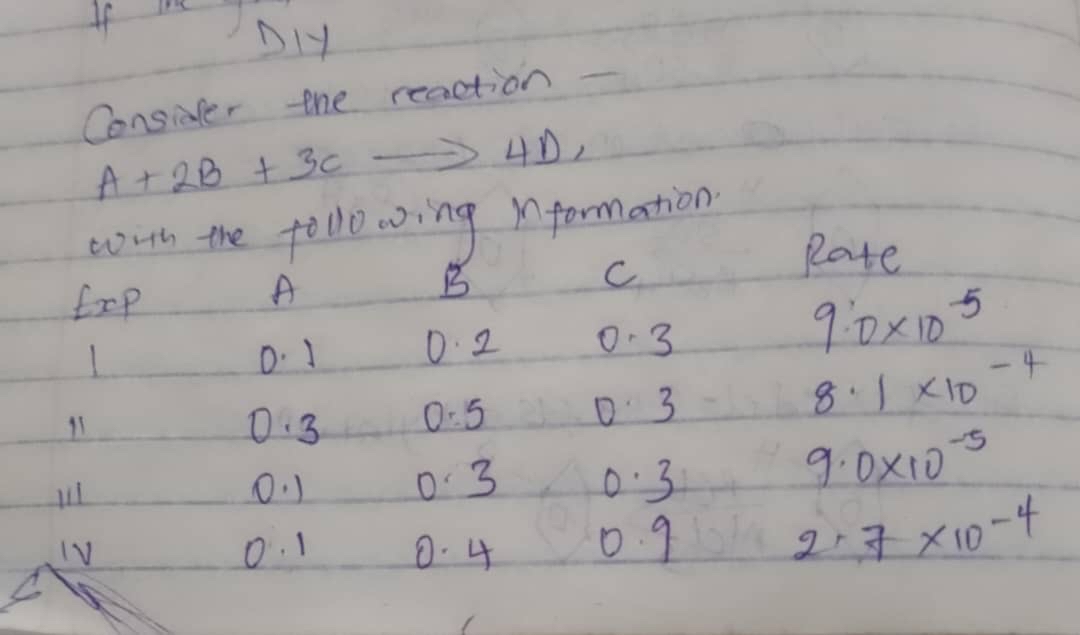 If the
DIY
Consider the reaction –
A + 2B + 3C → 4D,
with the following Information.
Exp A B C Rate
I 0.1 0.2 0.3 9.0 × 10⁻⁵
II 0.3 0.5 0.3 8.1 × 10⁻⁴
III 0.1 0.3 0.3 9.0 × 10⁻⁵
IV 0.1 0.4 0.9 2.7 × 10⁻⁴